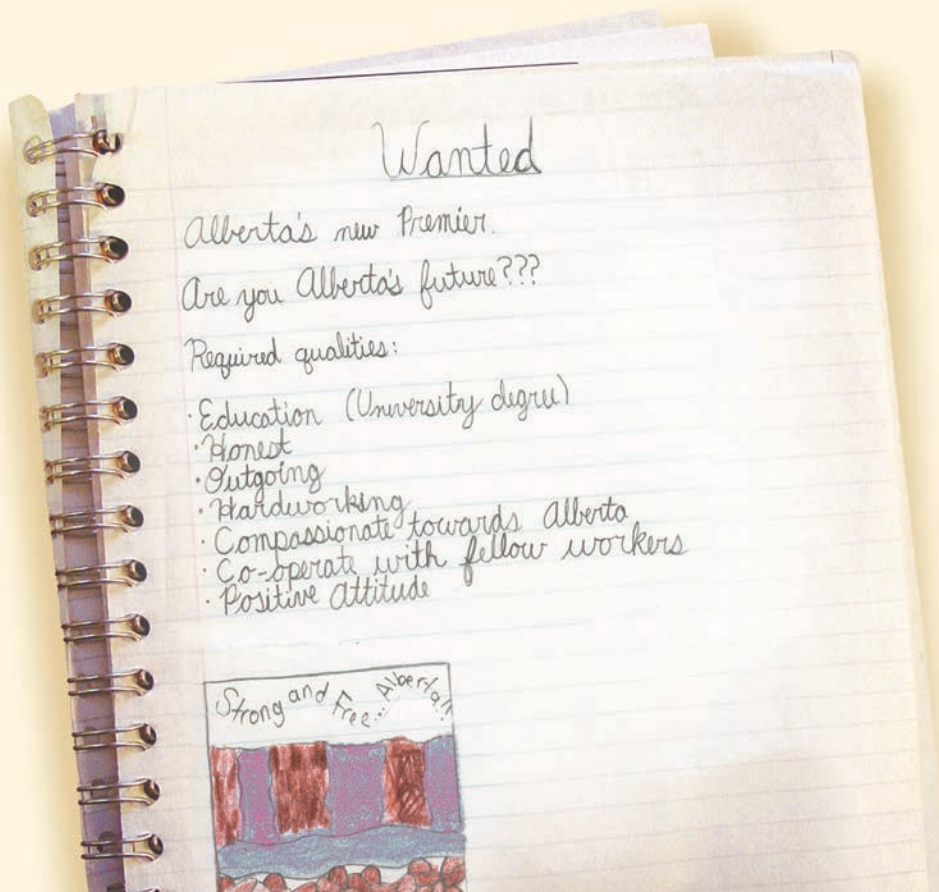 Wanted
Alberta's new Premier.
Are you Alberta's future???
Required qualities:
· Education (University degree)
· Honest
· Outgoing
· Hardworking
· Compassionate towards Alberta
· Co-operate with fellow workers
· Positive attitude
Strong and Free... Alberta!!